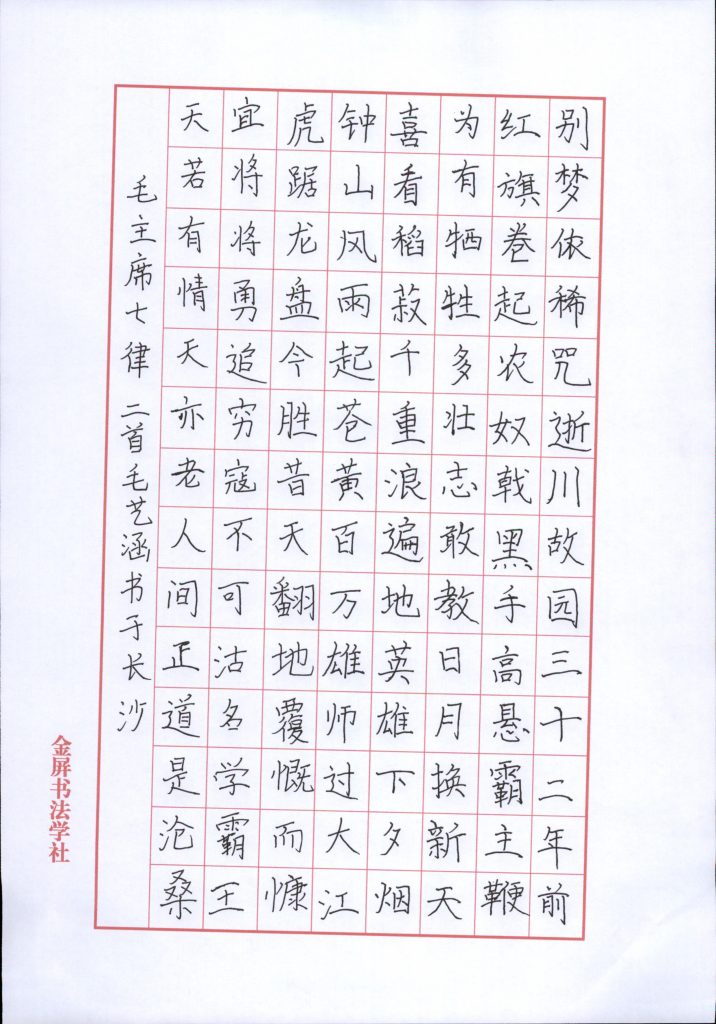 别梦依稀咒逝川故园三十二年前
红旗卷起农奴戟黑手高悬霸主鞭
为有牺牲多壮志敢教日月换新天
喜看稻菽千重浪遍地英雄下夕烟
钟山风雨起苍黄百万雄师过大江
虎踞龙盘今胜昔天翻地覆慨而慷
宜将将勇追穷寇不可沽名学霸王
天若有情天亦老人间正道是沧桑
毛主席七律二首毛艺涵书于长沙
金屏书法学社